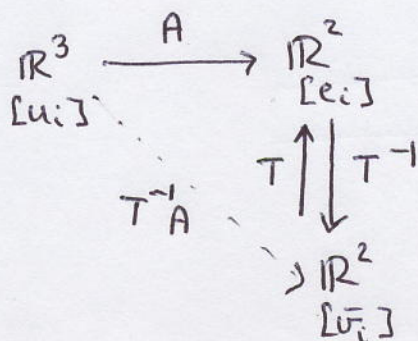 A
ℝ³ ℝ²
[uᵢ] [eᵢ]
T T⁻¹
T⁻¹A
ℝ²
[v̄ᵢ]